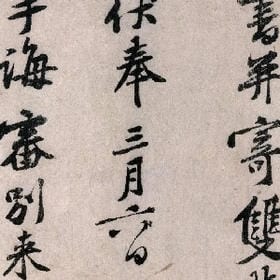 書并寄雙
伏奉三月六日
手誨審別来